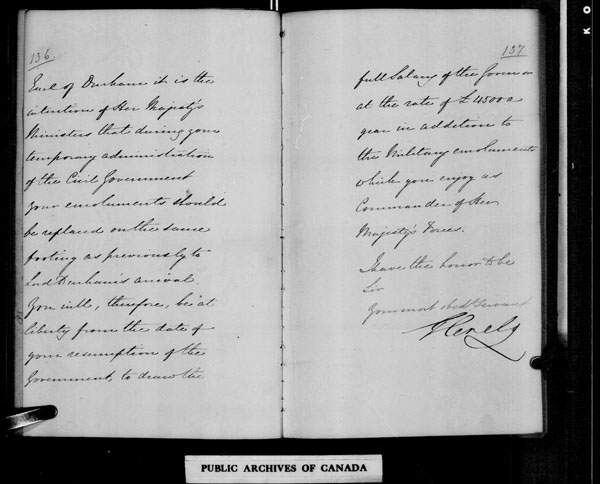 136.
Earl of Durham it is the
intention of Her Majesty's
Ministers that during your
temporary administration
of the Civil Government
your emoluments should
be replaced on the same
footing as previously to
Lord Durham's arrival.
You will, therefore, be at
liberty from the date of
your resumption of the
Government, to draw the
137
full Salary of the Governor
at the rate of £4500 a
year in addition to
the Military emoluments
which you enjoy as
Commander of Her
Majesty's Forces.
I have the honor to be
Sir
Your most obedt Servant
Glenelg
PUBLIC ARCHIVES OF CANADA
K O